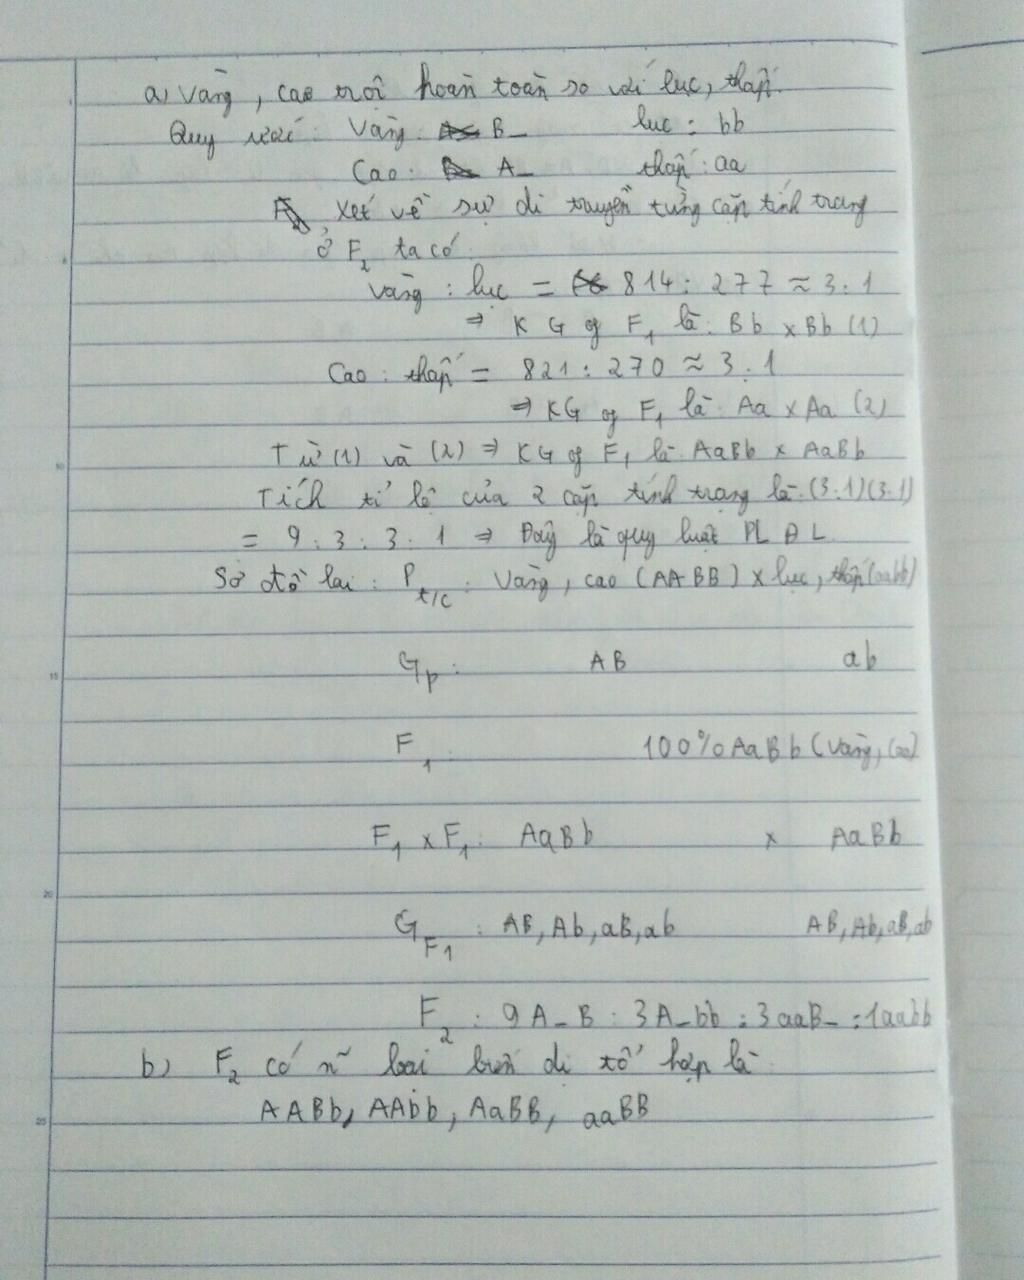 a, Vàng, cao trội hoàn toàn so với lục, thấp.
Quy ước: Vàng: B_ lục: bb
Cao: A_ thấp: aa
Xét về sự di truyền từng cặp tính trạng
ở F2 ta có
Vàng : lục = 814 : 277 ≈ 3:1
⇒ KG of F1 là: Bb x Bb (1)
Cao : thấp = 821 : 270 ≈ 3:1
⇒ KG of F1 là: Aa x Aa (2)
Từ (1) và (2) ⇒ KG of F1 là: AaBb x AaBb
Tích tỉ lệ của 2 cặp tính trạng là: (3:1)(3:1)
= 9:3:3:1 ⇒ Đây là quy luật PLĐL
Sơ đồ lai: P t/c: Vàng, cao (AABB) x lục, thấp (aabb)
Gp: AB ab
F1: 100% AaBb (Vàng, cao)
F1 x F1: AaBb x AaBb
G F1: AB, Ab, aB, ab AB, Ab, aB, ab
F2: 9A_B : 3A_bb : 3aaB_ : 1aabb
b) F2 có loại biến dị tổ hợp là:
AABb, AAbb, AaBB, aaBB